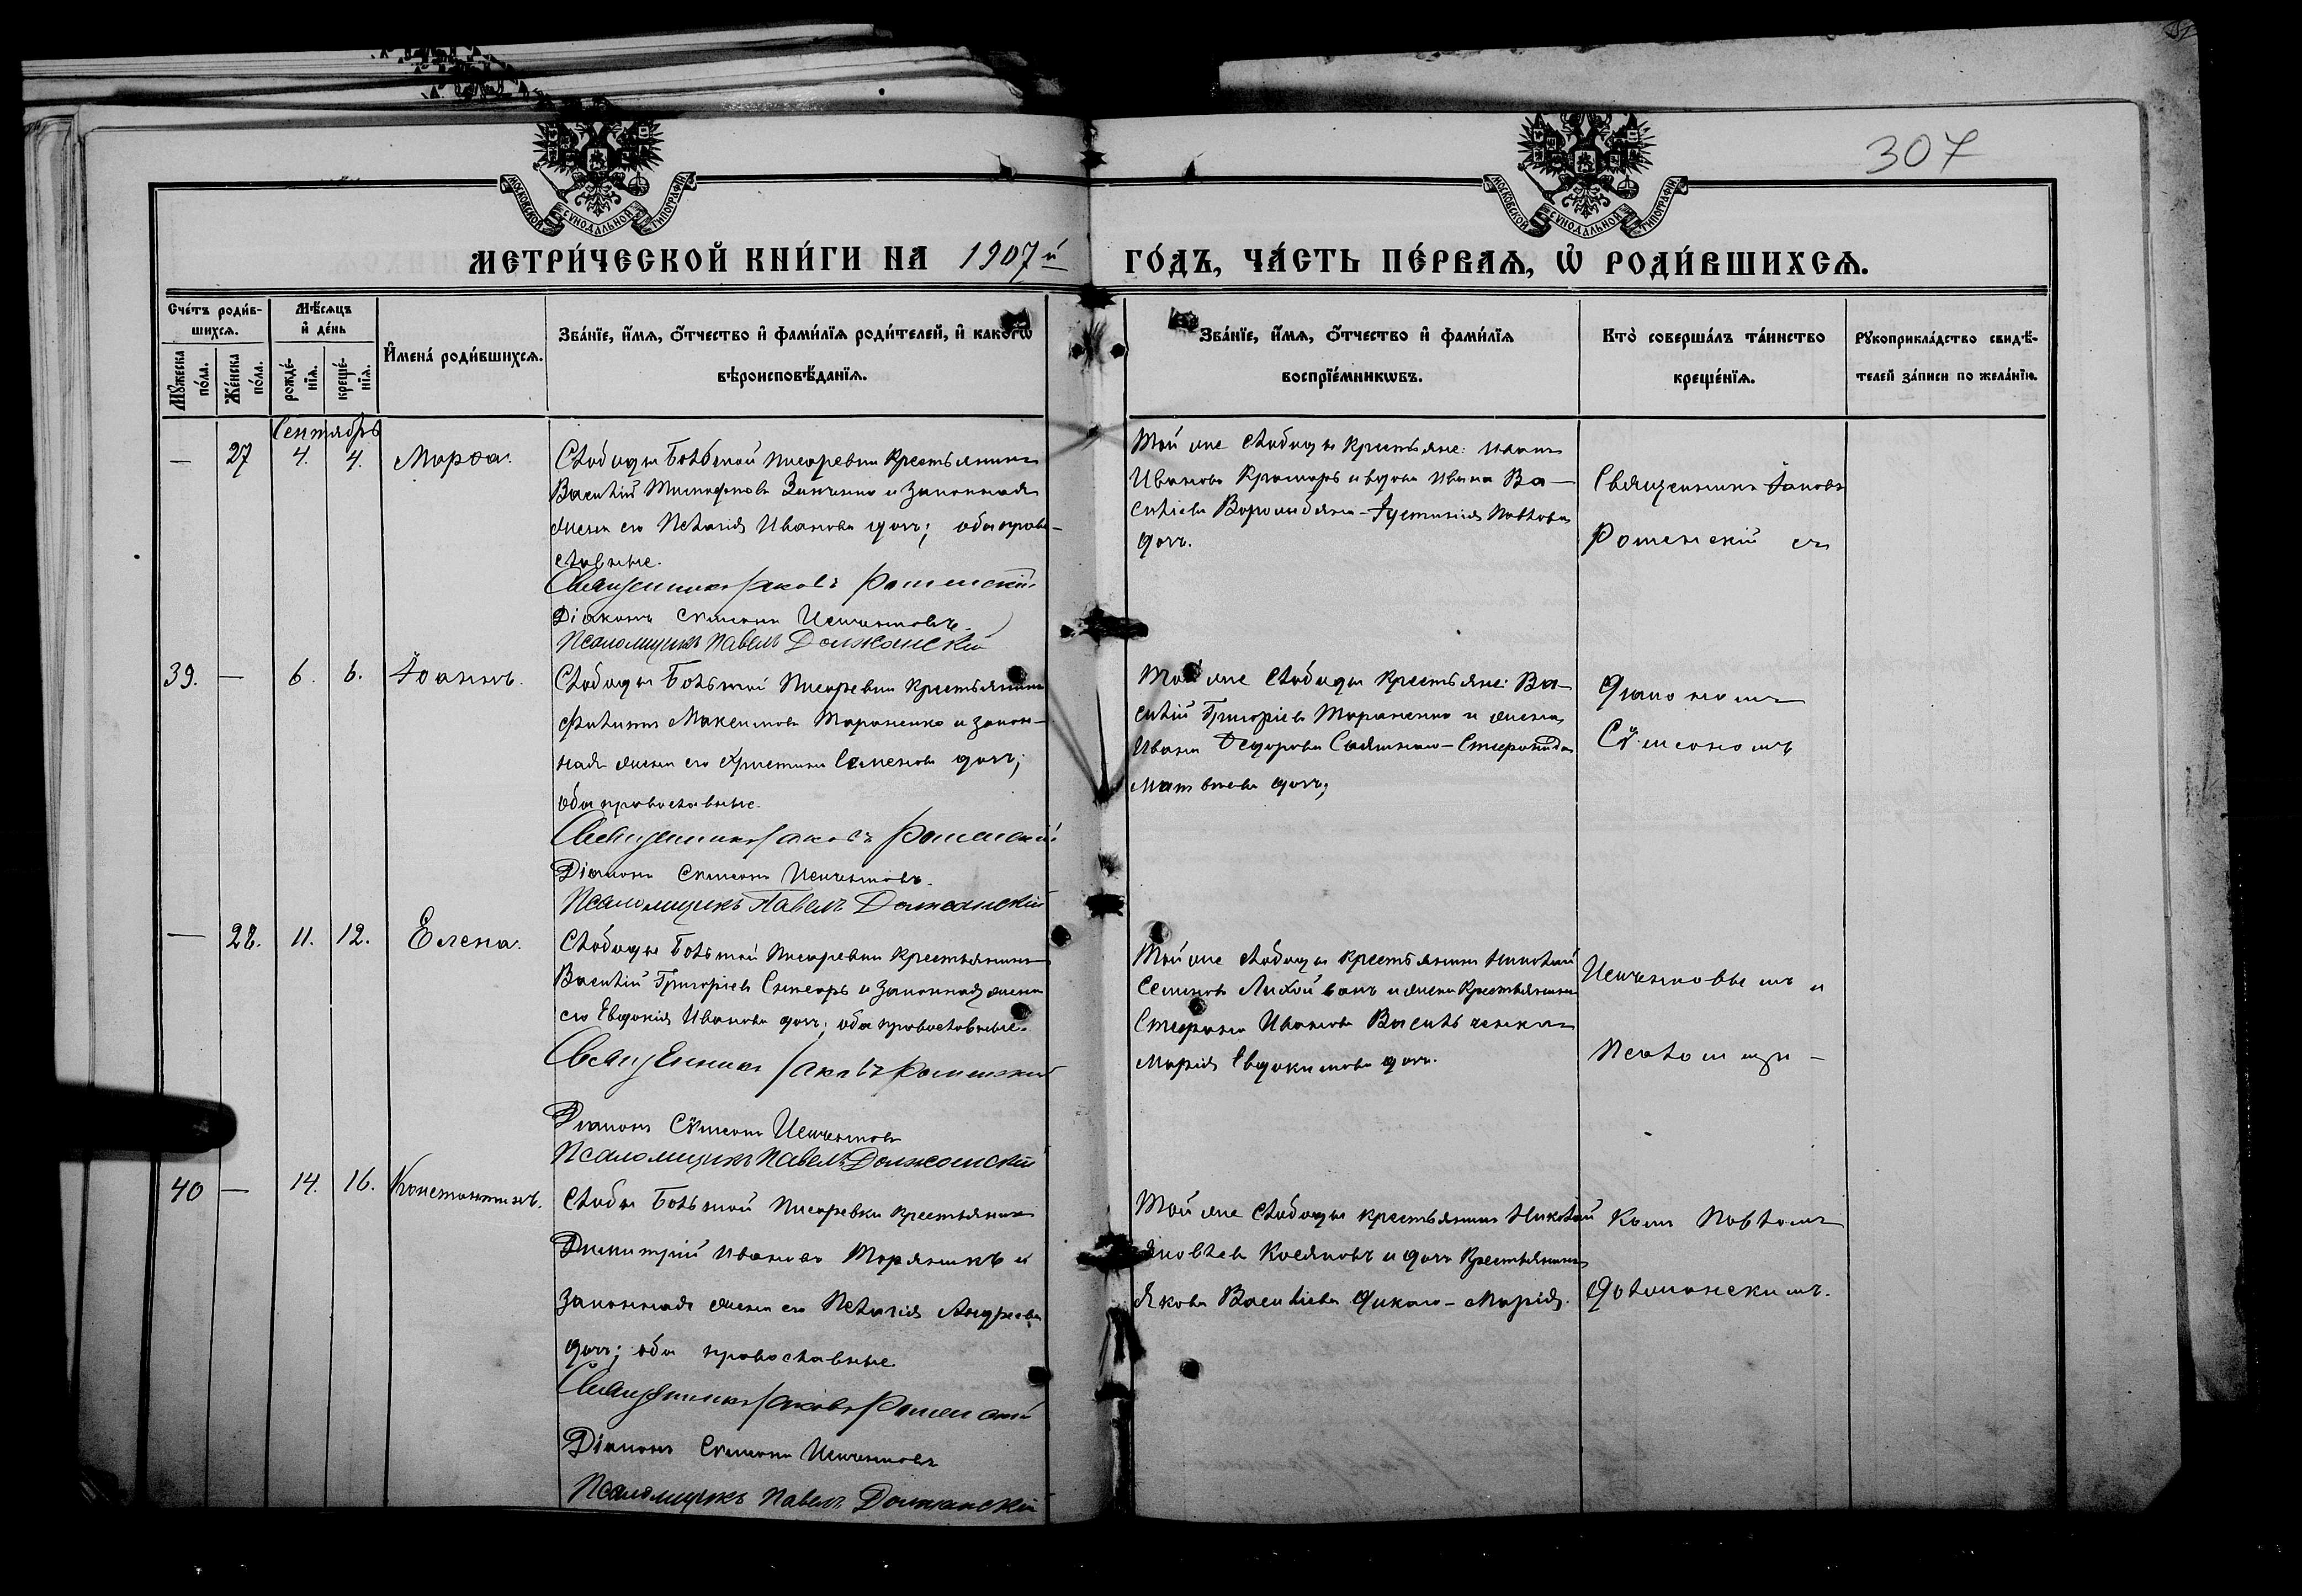 307
МОСКОВСКОЙ СѴНОДАЛЬНОЙ ТИПОГРАФІИ
МОСКОВСКОЙ СѴНОДАЛЬНОЙ ТИПОГРАФІИ
МЕТРИ́ЧЕСКОЙ КНИ́ГИ НА 1907й
ГО́ДЪ, ЧА́СТЬ ПЕ́РВАѦ, Ѡ҆ РОДИ́ВШИХСѦ.
Сче́тъ роди́в-
шихсѧ.
Мꙋ́жеска по́ла.
Же́нска по́ла.
Мѣ́сѧцъ
и҆ де́нь
рожде́-
нїѧ.
креще́-
нїѧ.
И҆мена̀ роди́вшихсѧ.
Зва́нїе, и҆́мѧ, ѻ҆́тчество и҆ фами́лїѧ роди́телей, и҆ како́гѡ
вѣроисповѣ́данїѧ.
Зва́нїе, и҆́мѧ, ѻ҆́тчество и҆ фами́лїѧ
воспрїе́мникѡвъ.
Кто̀ соверша́лъ та́инство
креще́нїѧ.
Рꙋкоприкла́дство свидѣ́-
телей за́писи по жела́нїю.
Сентябрь
— 27 4. 4. Марѳа.
Слободы Большой Писаревки крестьянинъ
Василій Тимофеевъ Зинченко и законная
жена его Пелагія Иванова дочь; оба право-
славные.
Священникъ Іаковъ Роменскій
Діаконъ Сѵмеонъ Исиченковъ
Псаломщикъ Павелъ Должанскій
Той же слободы крестьяне: Иванъ
Ивановъ Крамарь и вдова Ивана Ва-
сильева Воромбаева - Іустинія Павлова
дочь.
Священникъ Іаковъ
Роменскій съ
39. — 6. 6. Іоаннъ.
Слободы Большой Писаревки крестьянинъ
Филиппъ Максимовъ Тараненко и закон-
ная жена его Христина Семенова дочь;
оба православные.
Священникъ Іаковъ Роменскій
Діаконъ Сѵмеонъ Исиченковъ.
Псаломщикъ Павелъ Должанскій
Той же слободы крестьяне: Ва-
силій Григорьевъ Тараненко и жена
Ивана Ѳедорова - Стефанида
Матвѣева дочь;
діакономъ
Сѵмеономъ
— 28. 11. 12. Елена.
Слободы Большой Писаревки крестьянинъ
Василій Григорьевъ и законная жена
его Евдокія Иванова дочь; оба православные.
Священникъ Іаковъ Роменскій
Діаконъ Сѵмеонъ Исиченковъ
Псаломщикъ Павелъ Должанскій
Той же слободы крестьянинъ Николай
Семеновъ Лихойванъ и жена крестьянина
Стефана Иванова Васильченка -
Марія Евдокимова дочь.
Исиченковымъ и
Псаломщи-
40 — 14. 16. Константинъ.
Слобды Большой Писаревки крестьянинъ
Димитрій Ивановъ Торяникъ и
законная жена его Пелагія Андреева
дочь; оба православные
Священникъ Іаковъ Роменскій
Діаконъ Сѵмеонъ Исиченковъ
Псаломщикъ Павелъ Должанскій
Той же слободы крестьянинъ Николай
Яковлевъ Касяновъ и дочь крестьянина
Якова Васильева Дикаго - Марія.
комъ Павломъ
Должанскимъ.